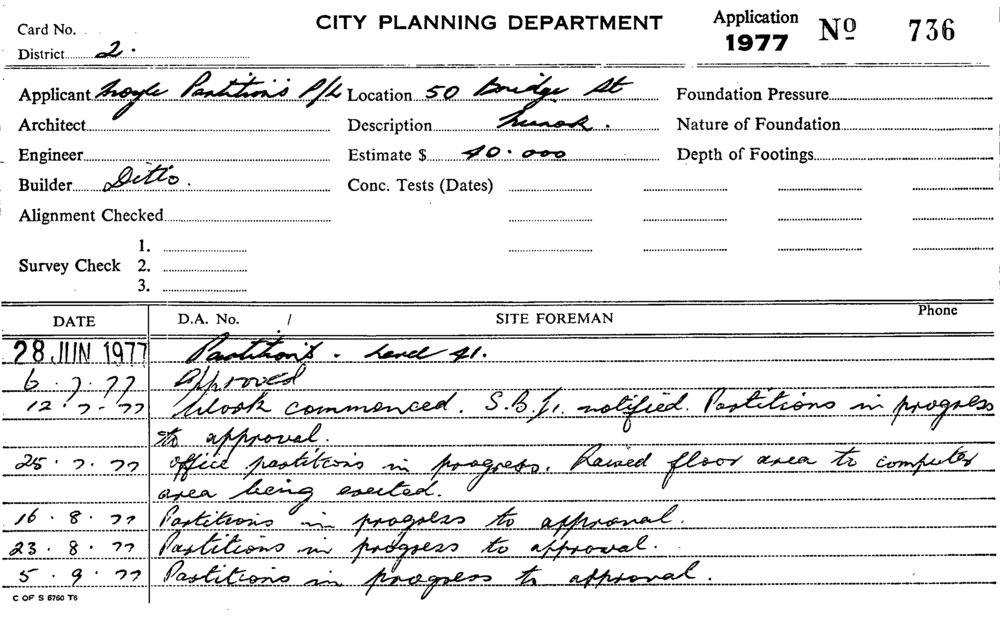 CITY PLANNING DEPARTMENT
Card No.
District 2.
Application 1977 Nº 736
Applicant Moyle Partitions P/L Location 50 Bridge St Foundation Pressure
Architect Description Nature of Foundation
Engineer Estimate $ 40.000 Depth of Footings
Builder Ditto. Conc. Tests (Dates)
Alignment Checked
1.
Survey Check 2.
3.
DATE D.A. No. / SITE FOREMAN Phone
28 JUN 1977 Partitions - Level 41.
6.7.77 Approved
12.7.77 Work commenced. notified. Partitions in progress
to approval.
25.7.77 office partitions in progress. Raised floor area to computer
area being erected.
16.8.77 Partitions in progress to approval.
23.8.77 Partitions in progress to approval.
5.9.77 Partitions in progress to approval.
C OF S 6760 T6